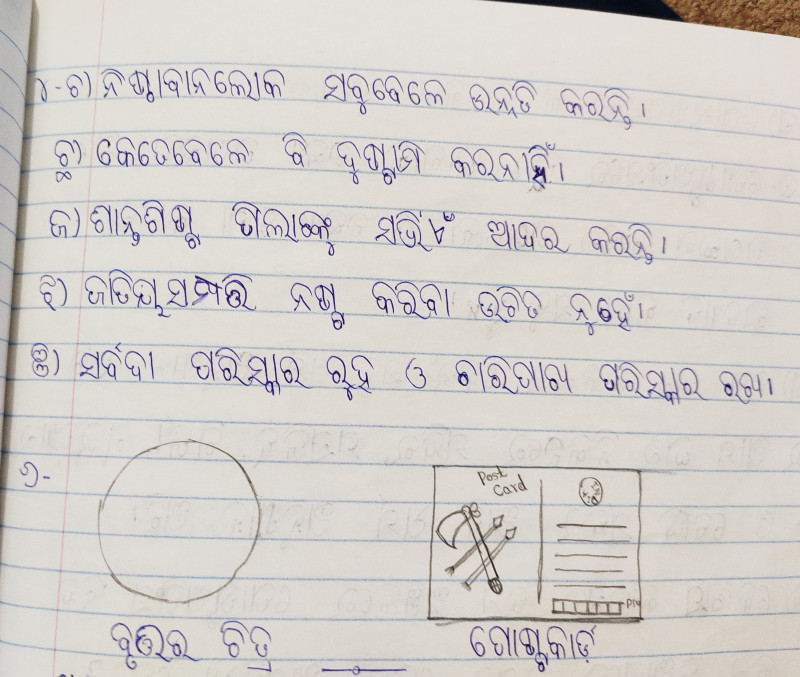 ୪-ଚ) ନିଷ୍ଠାବାନଲୋକ ସବୁବେଳେ ଉନ୍ନତି କରନ୍ତି।
ଛ) କେତେବେଳେ ବି ଦୁଷ୍ଟାମି କରନାହିଁ।
ଜ) ଶାନ୍ତଶିଷ୍ଟ ପିଲାଙ୍କୁ ସଭିଏଁ ଆଦର କରନ୍ତି।
ଝ) ଜାତୀୟସମ୍ପତ୍ତି ନଷ୍ଟ କରିବା ଉଚିତ ନୁହେଁ।
ଞ) ସର୍ବଦା ପରିସ୍କାର ରୁହ ଓ ଚାରିପାଖ ପରିସ୍କାର ରଖ।
୬-
Post
Card
PIN
ବୃତ୍ତର ଚିତ୍ର ପୋଷ୍ଟକାର୍ଡ଼